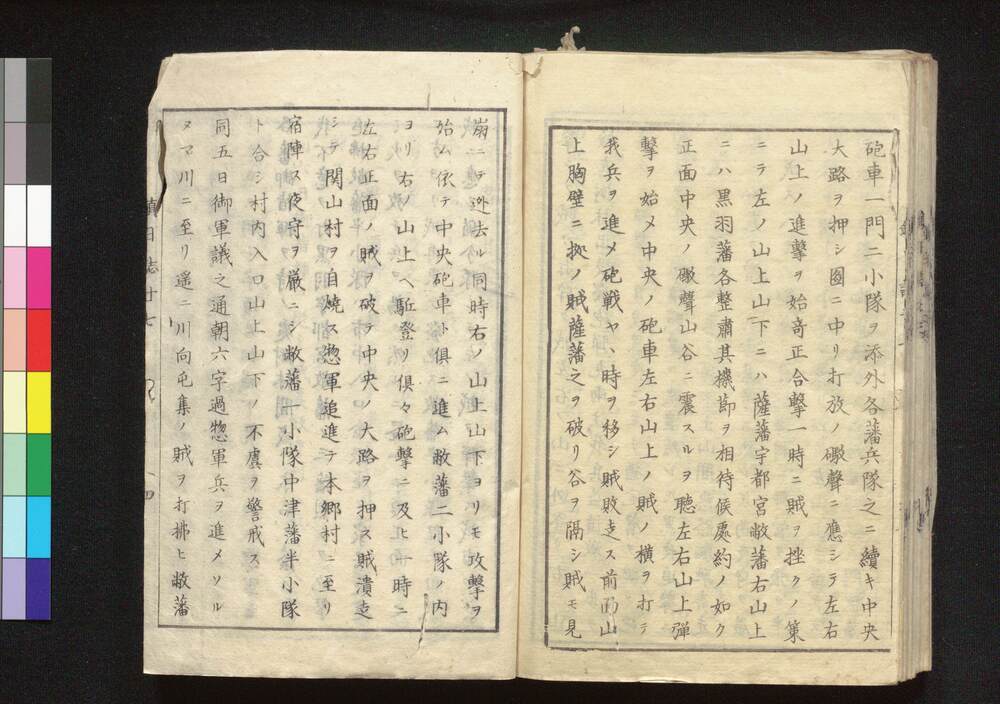 砲車一門二小隊ヲ添外各藩兵隊之ニ續キ中央
大路ヲ押シ圖ニ中リ打放ノ礮聲ニ應シテ左右
山上ノ進撃ヲ始竒正合撃一時ニ賊ヲ挫クノ策
ニテ左ノ山上山下ニハ薩藩宇都宮敝藩右山上
ニハ黒羽藩各整肅其機節ヲ相待候處約ノ如ク
正面中央ノ礮聲山谷ニ震スルヲ聴左右山上弾
撃ヲ始メ中央ノ砲車左右山上ノ賊ノ横ヲ打テ
我兵ヲ進メ砲戦ヤヽ時ヲ移シ賊敗走ス前面山
上胸壁ニ拠ノ賊薩藩之ヲ破リ谷ヲ隔シ賊モ見
崩ニテ迯去ル同時右ノ山上山下ヨリモ攻撃ヲ
始ム依テ中央砲車ト倶ニ進ム敝藩二小隊ノ内
ヨリ右ノ山上ヘ駈登リ倶々砲撃ニ及ヒ一時ニ
左右正面ノ賊ヲ破テ中央ノ大路ヲ押ス賊潰走
シテ関山村ヲ自焼ス惣軍追進テ本郷村ニ至リ
宿陣ス夜守ヲ厳ニシ敝藩一小隊中津藩半小隊
ト合シ村内入口山上山下ノ不虞ヲ警戒ス
同五日御軍議之通朝六字過惣軍兵ヲ進メソル
ヌマ川ニ至リ遥ニ川向屯集ノ賊ヲ打拂ヒ敝藩
日誌十七
四